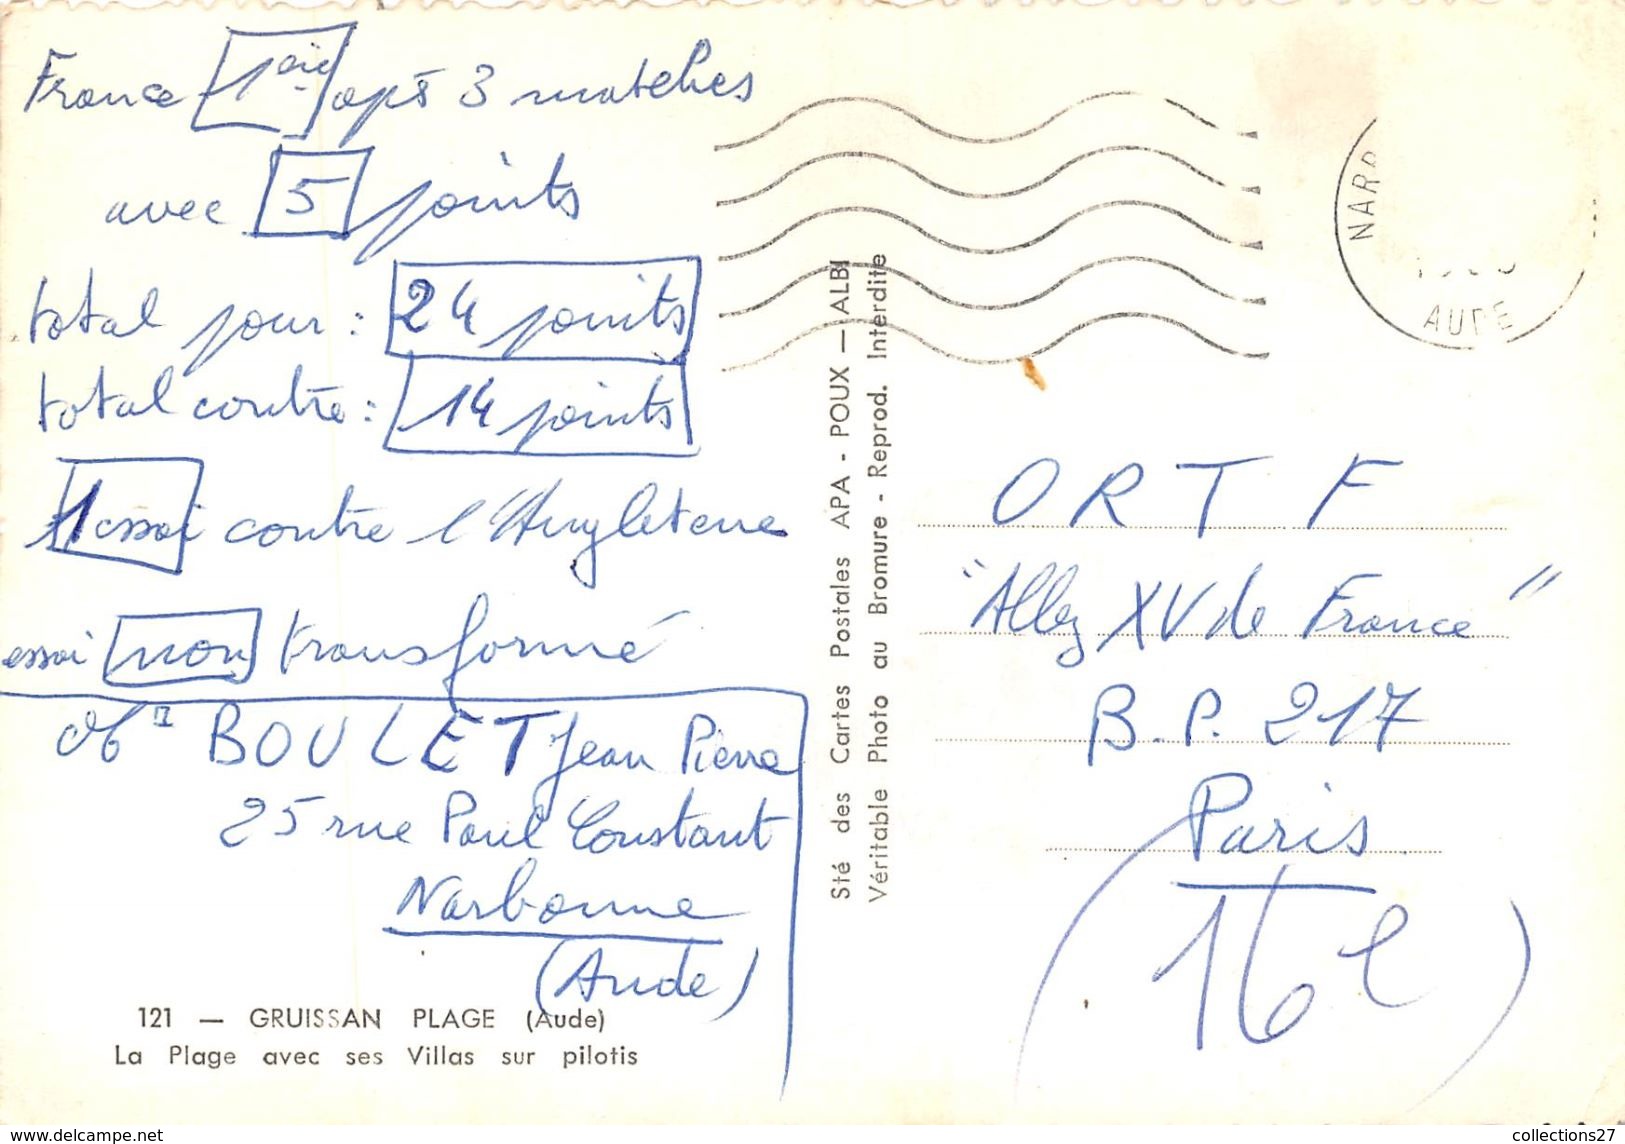 France 1ère apš 3 matches
avec 5 points
total pour : 24 points
total contre : 14 points
1 essai contre l'Angleterre
essai non transformé
Mr BOULET Jean Pierre
25 rue Paul Constant
Narbonne
(Aude)
121 — GRUISSAN PLAGE (Aude)
La Plage avec ses Villas sur pilotis
Sté des Cartes Postales APA - POUX — ALBI
Véritable Photo au Bromure - Reprod. Interdite
NARB
AUDE
ORTF
"Allez XV de France"
B.P. 217
Paris
(16e)
collections27